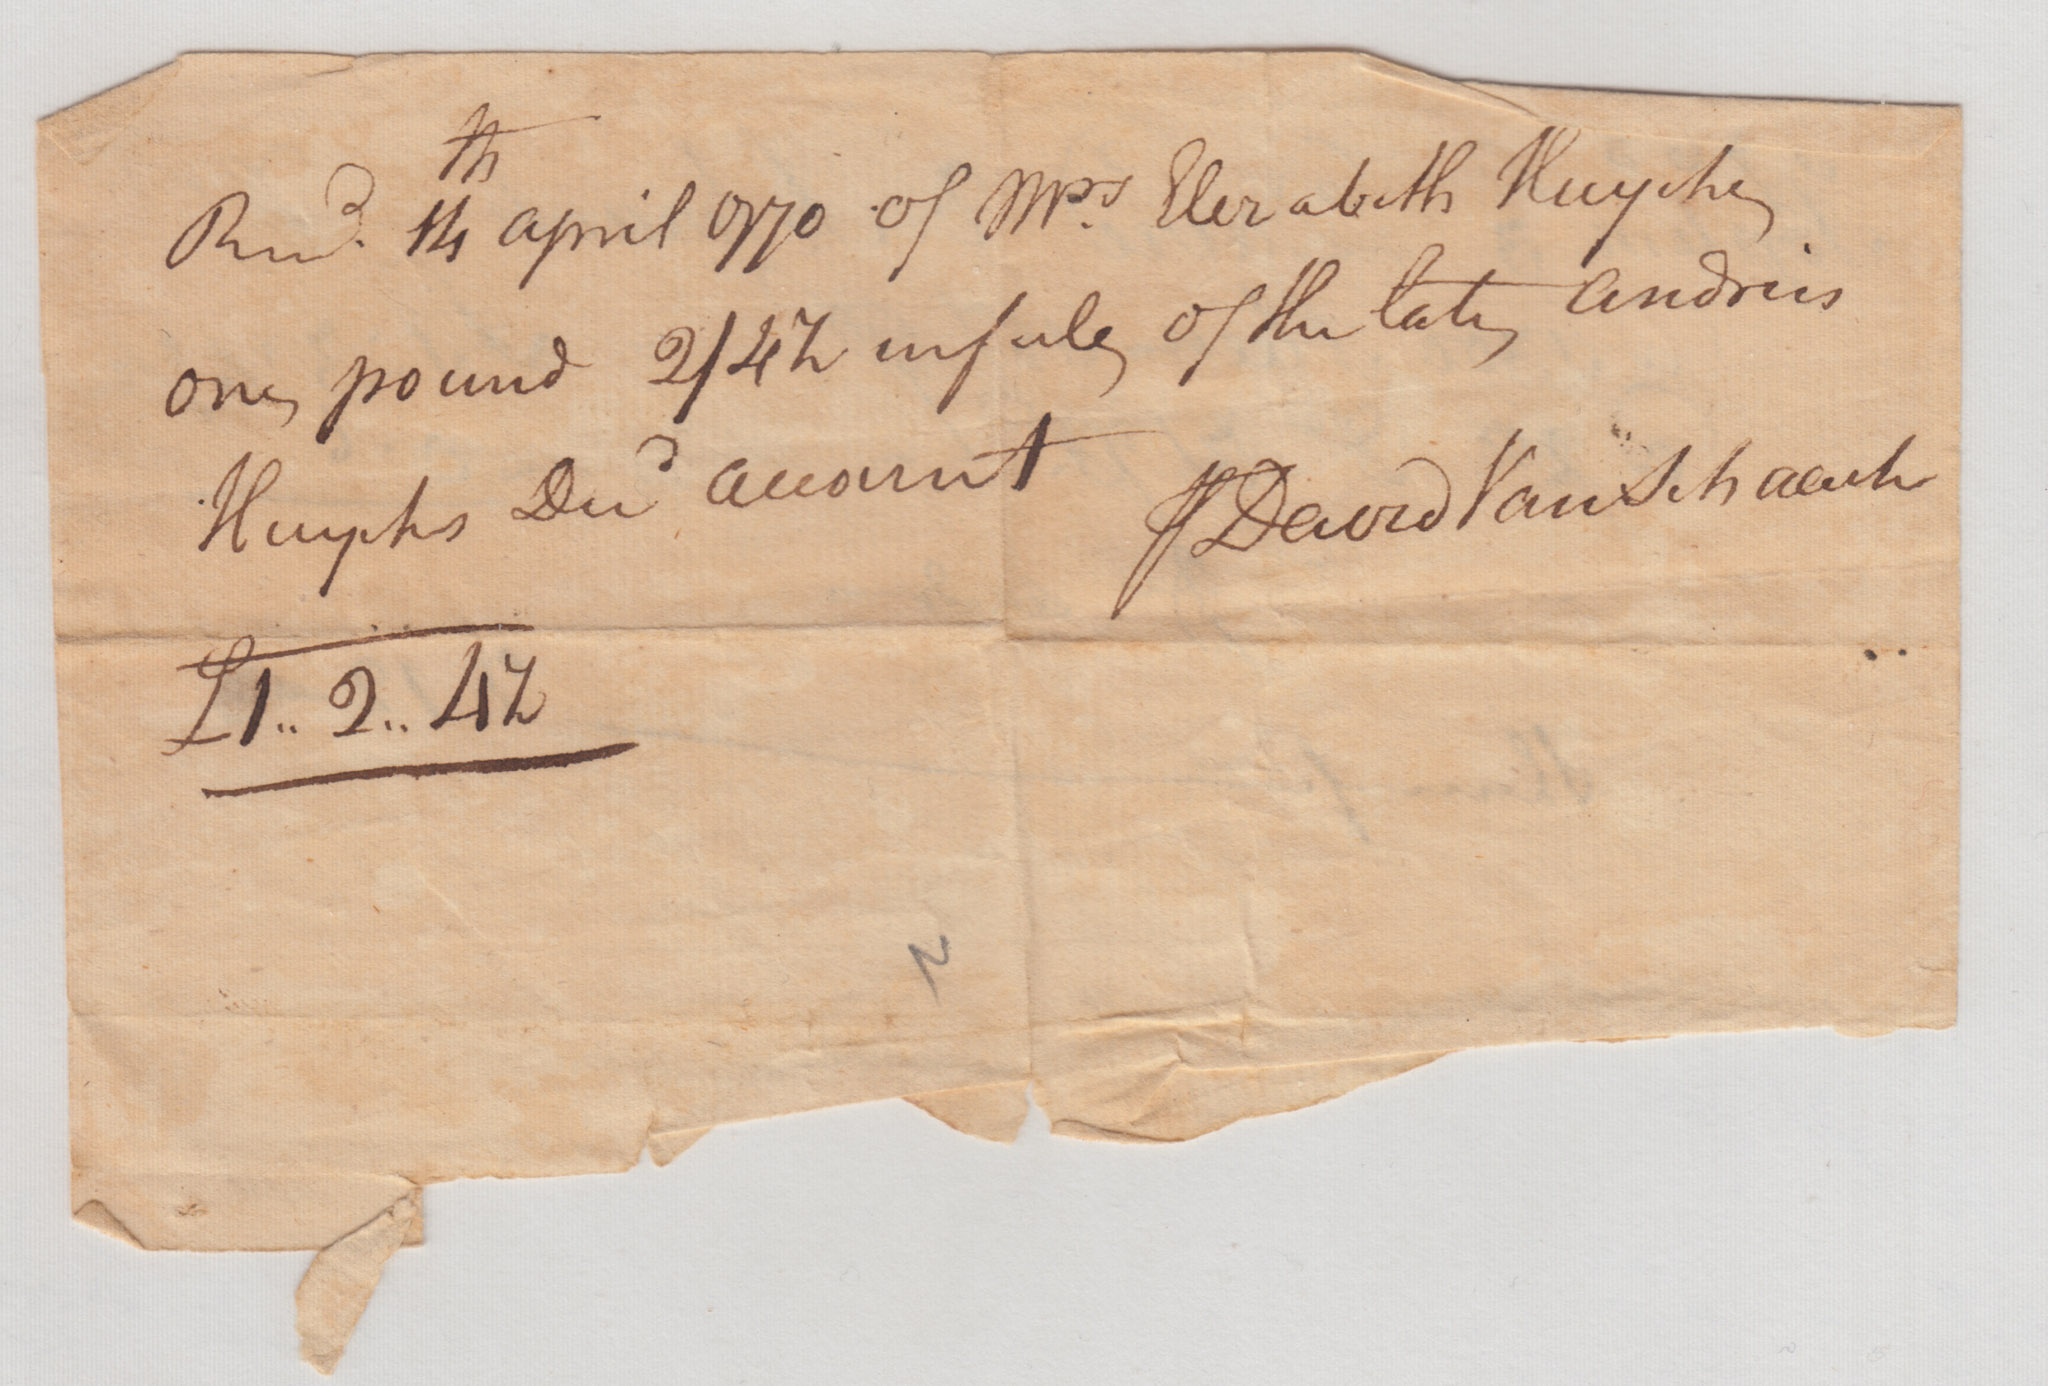 Recd. 14th april 1770 of Mrs. Elezabeth Huyck
one pound 2/4½ in full of the late andries
Huycks Decd account
P David Van Schaack
£1..2..4½